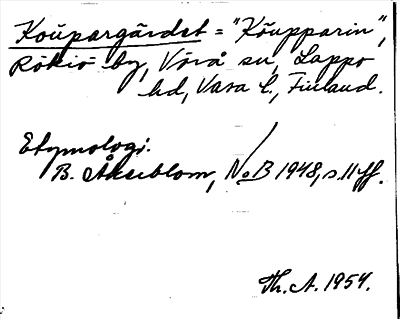 Koupargärdet = "Kõupparin",
Rökiö by, Vörå sn, Lappo
hd, Vasa l., Finland.
Etymologi.
B. Åkerblom, NoB 1948, s. 11 ff.
Th. A. 1954.